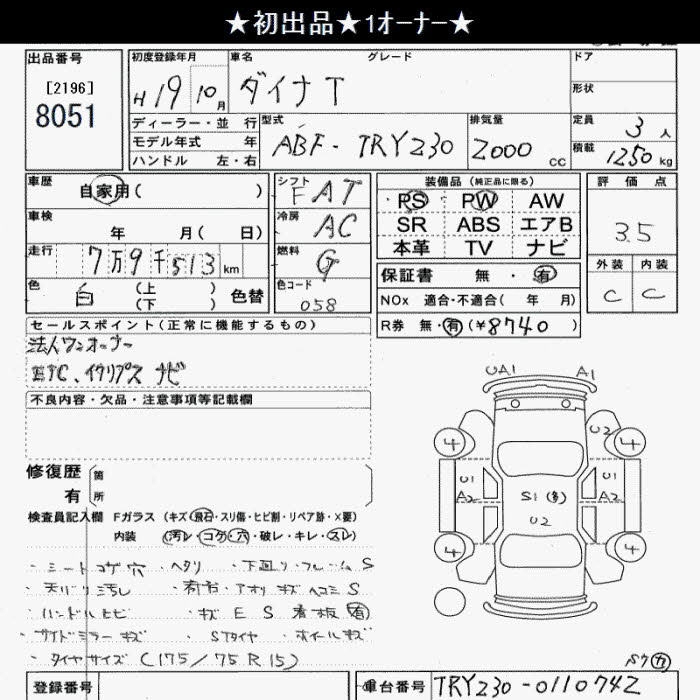 ★初出品★1ｵｰﾅｰ★
出品番号
[2196]
8051
初度登録年月 車名 グレード ドア
H19 10月 ダイナT 形状
ディーラー・並 行 型式 排気量 定員 3人
モデル年式 年 ABF-TRY230 2000cc 積載 1250kg
ハンドル 左・右
車歴 自家用( ) シフト FAT 装備品 (純正品に限る) 評価点
車検 年 月( 日) 冷房 AC PS PW AW 3.5
走行 7万9千513km 燃料 G SR ABS エアB 外装 内装
本革 TV ナビ C C
色 白 (上) (下) 色替 色コード 058 保証書 無・有
NOx 適合・不適合( 年 月)
R券 無・有(¥8740)
セールスポイント(正常に機能するもの)
法人ワンオーナー
ETC、イクリプス ナビ
不良内容・欠品・注意事項等記載欄
UA1 A1
U2
4 4
U1 A2 S1(多) U2 U1 A2
4 4
修復歴 箇所
有
検査員記入欄 Fガラス (キズ・飛石・スリ傷・ヒビ割・リペア跡・×要)
内装 (汚レ・コゲ・穴・破レ・キレ・スレ)
・シートコゲ穴 ・ヘタリ ・下廻リ・フレーム S
・天バリ汚レ ・荷台・アオリ キズ ヘコミ S
・ハンドルヒビ ・キズ E S 看板(有)
・サイドミラーキズ ・Sタイヤ ・ホイールキズ
・タイヤサイズ (175/75R15)
登録番号 車台番号 TRY230-0110742